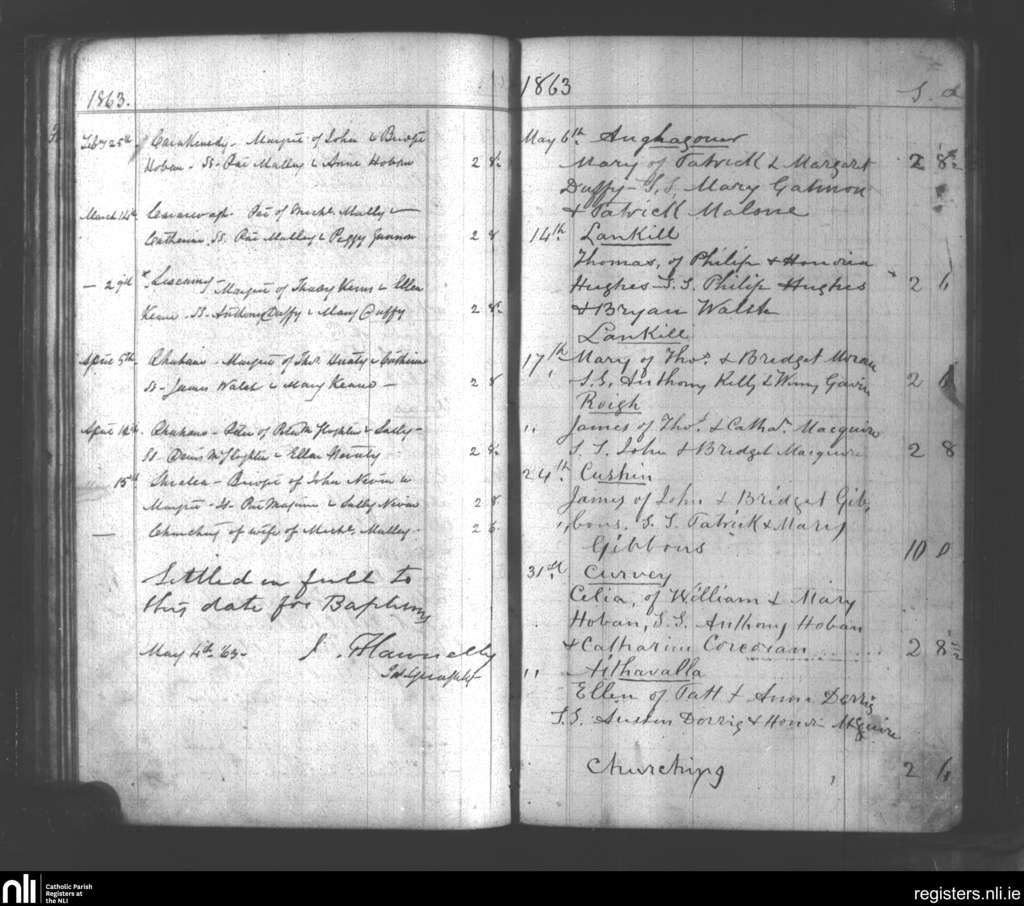 1863.
Feby 25th Carrakenedy - Margret of John & Bridget
Hoban - SS - Pat Malley & Anne Hoban 2 8
March 14th Pat of Michl Mally &
Catherine SS. Pat Malley & Peggy Gannon 2 8
- 2 Margret of Kerns & Ellen
SS. Anthony Duffy & Mary Duffy 2 8
April 5th Margret of Thos & Catherine
SS - James Walsh & Mary 2 8
April 12th Peter of Peter & Sally
SS. & Ellen 2 8
15th of John Nevin &
Margret - SS - Pat & Sally Nevin 2 8
— Churching of wife of Michl Malley - 2 6
Settled in full to
this date for Baptisms
May 4th 63 -
1863
S. d
May 6th. Aughagower
Mary of Patrick & Margaret 2 8
Duffy - S.S. Mary Gannon
& Patrick Malone
14th. Lankill
Thomas, of Philip & Honoria
Hughes - S.S. Philip Hughes 2 6
& Bryan Walsh
Lankill
17th Mary of Thos. & Bridget Moran
S.S. Anthony Kelly & Winny Gavin 2 6
Roigh
" James of Thos. & Cathar. Macguire
S.S. John & Bridget Macguire 2 8
24th. Cushin
James of John & Bridget Gib
bons. S.S. Patrick & Mary
Gibbons 10 0
31st. Curvey
Celia, of William & Mary
Hoban, S.S. Anthony Hoban
& Catharine Corcoran 2 8
" Aithavalla
Ellen of Patt & Anne Dorris
S.S. Austin Dorrig & Honor McGuire
Churching 2 6
nli
Catholic Parish
Registers at
the NLI
registers.nli.ie